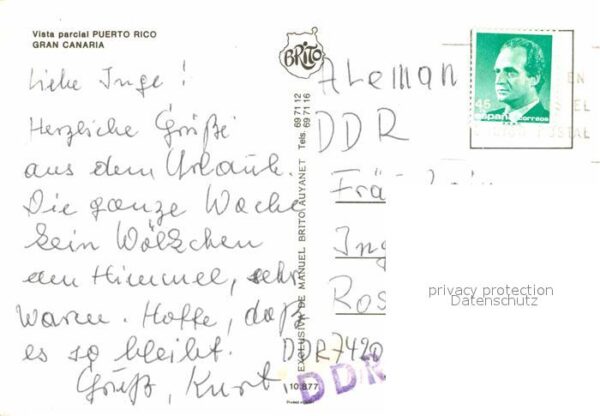 Vista parcial PUERTO RICO
GRAN CANARIA
Liebe Inge!
Herzliche Grüße
aus dem Urlaub.
Die ganze Woche
kein Wölkchen
am Himmel, sehr
warm. Hoffe, daß
es so bleibt.
Gruß, Kurt.
BRITO
EXCLUSIVA DE MANUEL BRITO AUYANET
Tels. 69 71 12
69 71 16
10.877
Aleman
DDR
Frä
Ing
Ros
DDR7420
DDR
45
españa
correos
EN
POSTAL
privacy protection
Datenschutz